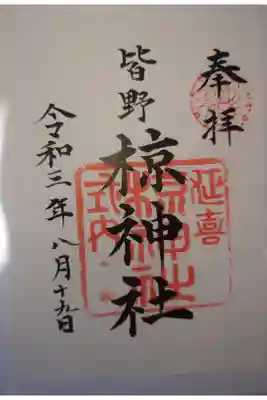 奉拝
皆野
椋神社
延喜
式内
椋神社
令和三年八月十九日